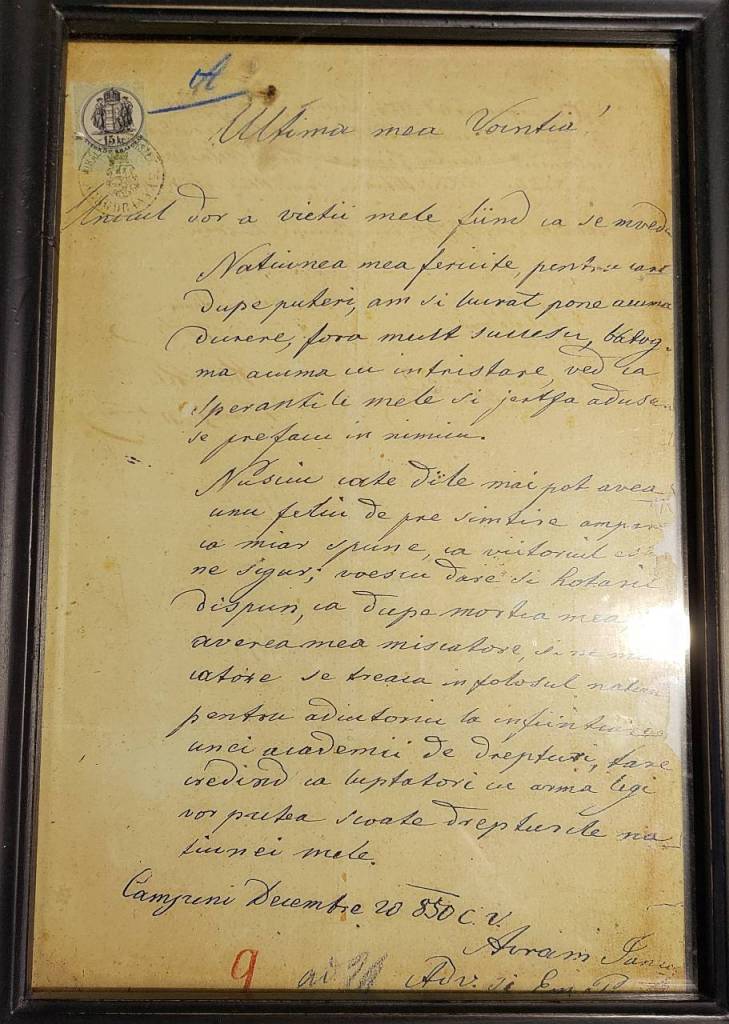 Ultima mea Vointia!
15 kr
Unicul dor a vietii mele fiind ca se mved
Natiunea mea fericite, pentru care
dupe puteri, am si lucrat pone acuma
durere, fora mult succesu,
ma acuma cu intristare, ved ca
sperantile mele si jertfa aduse
se prefacu in nimicu.
Nusciu cate dile mai pot avea
unu feliu de pre simtire
ca miar spune, ca viitoriul es
ne sigur; voescu dare si hotarit
dispun, ca dupe mortea mea,
averea mea miscatore, si ne
catore se treaca in folosul
pentru adiutoriu la infiintiarea
unei academii de drepturi, tare
credind ca luptatori cu arma legi
vor putea scoate drepturile na
tiunei mele.
Campeni Decembre 20 850 C. V.
Avram Iancu
Adv. si
9 ad